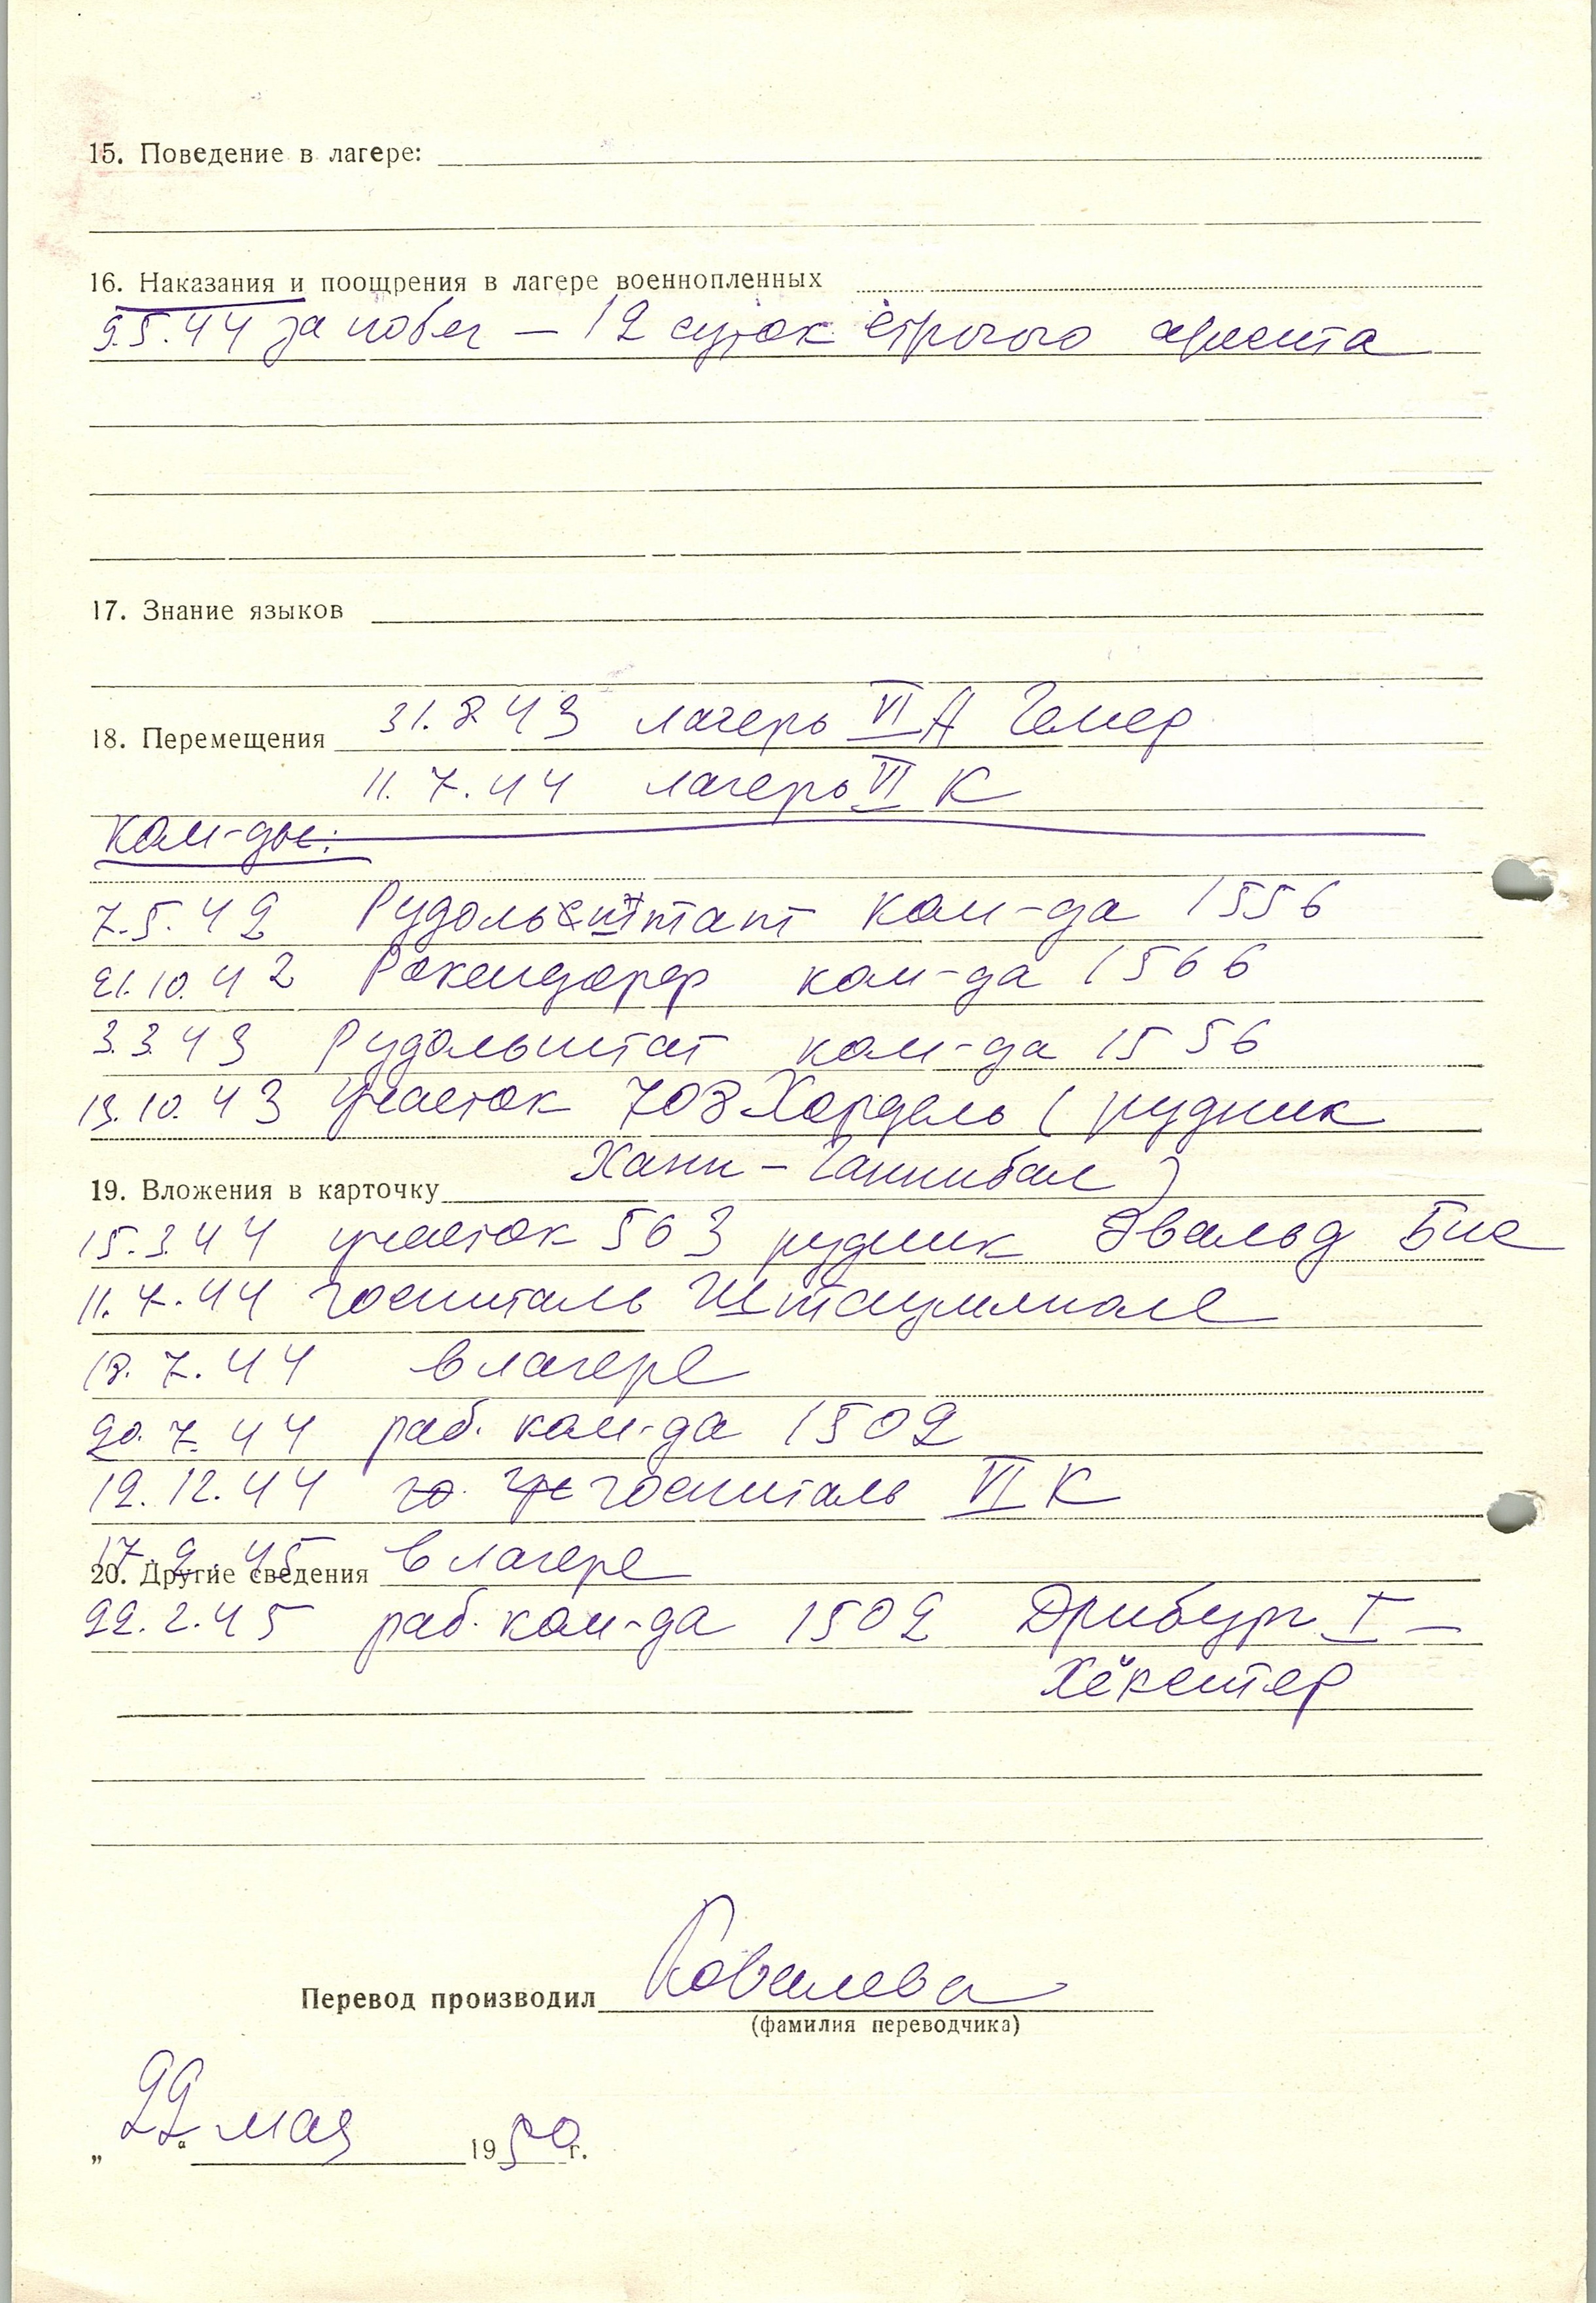 15. Поведение в лагере:
16. Наказания и поощрения в лагере военнопленных
9.5.44 за побег – 12 суток строгого ареста
17. Знание языков
18. Перемещения 31.8.43 лагерь VI А Гемер
11.7.44 лагерь VI К
Ком-ды:
7.5.42 Рудольштат ком-да 1556
21.10.42 Рокендорф ком-да 1566
3.3.43 Рудольштат ком-да 1556
13.10.43 Участок 703 Хордель (рудник
Ханн – Ганнибал)
19. Вложения в карточку
15.3.44 участок 563 рудник Эвальд Бис
11.7.44 госпиталь Штаумюле
18.7.44 в лагере
20.7.44 раб. ком-да 1502
12.12.44 го. госпиталь VI К
17.2.45 в лагере
20. Другие сведения
22.2.45 раб. ком-да 1502 Дрибург I –
Хёкстер
Перевод производил Ковалева
(фамилия переводчика)
„22“ мая 1950 г.